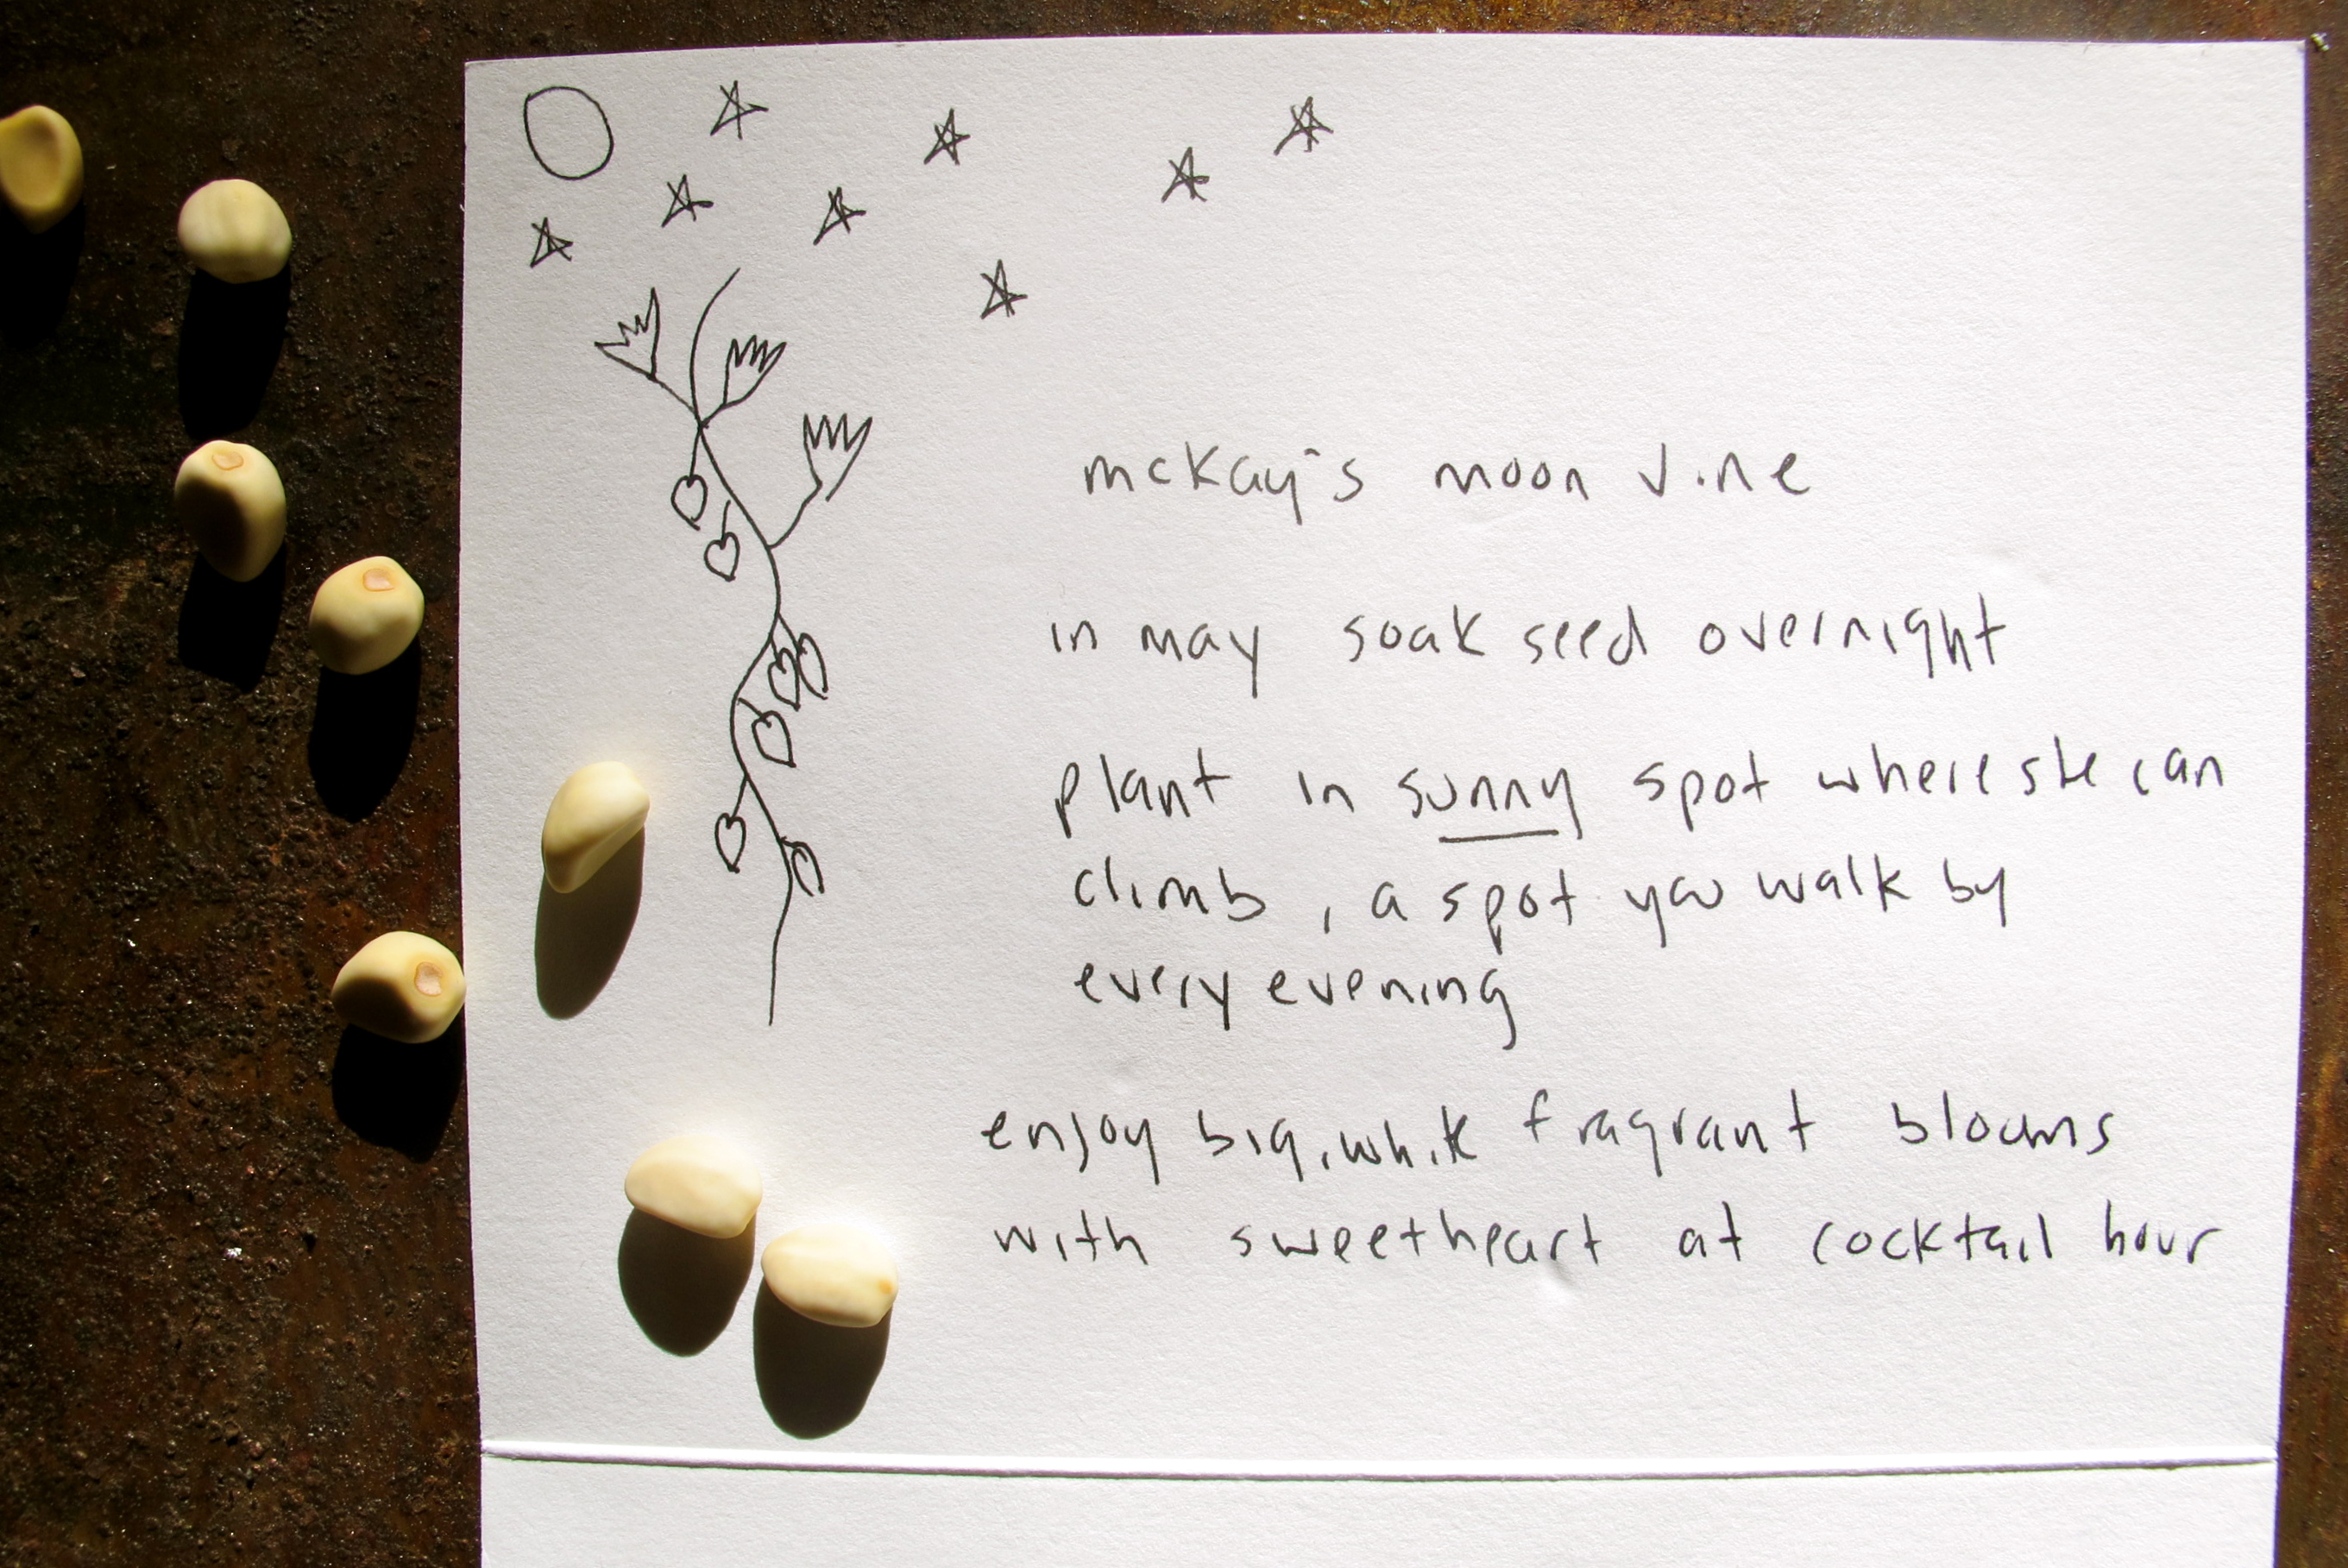 mcKay's moon vine
in may soak seed overnight
plant in sunny spot where she can
climb, a spot you walk by
every evening
enjoy big, white fragrant blooms
with sweetheart at cocktail hour